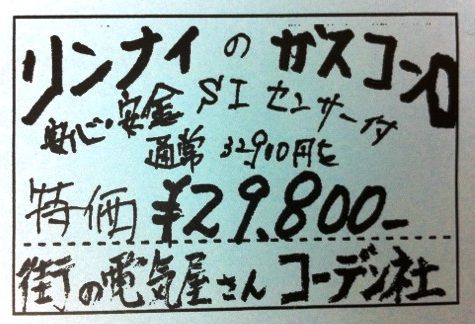 リンナイの ガスコンロ
安心・安全 SIセンサー付
通常 32,900円を
特価 ¥29.800-
街の電気屋さん コーデン社